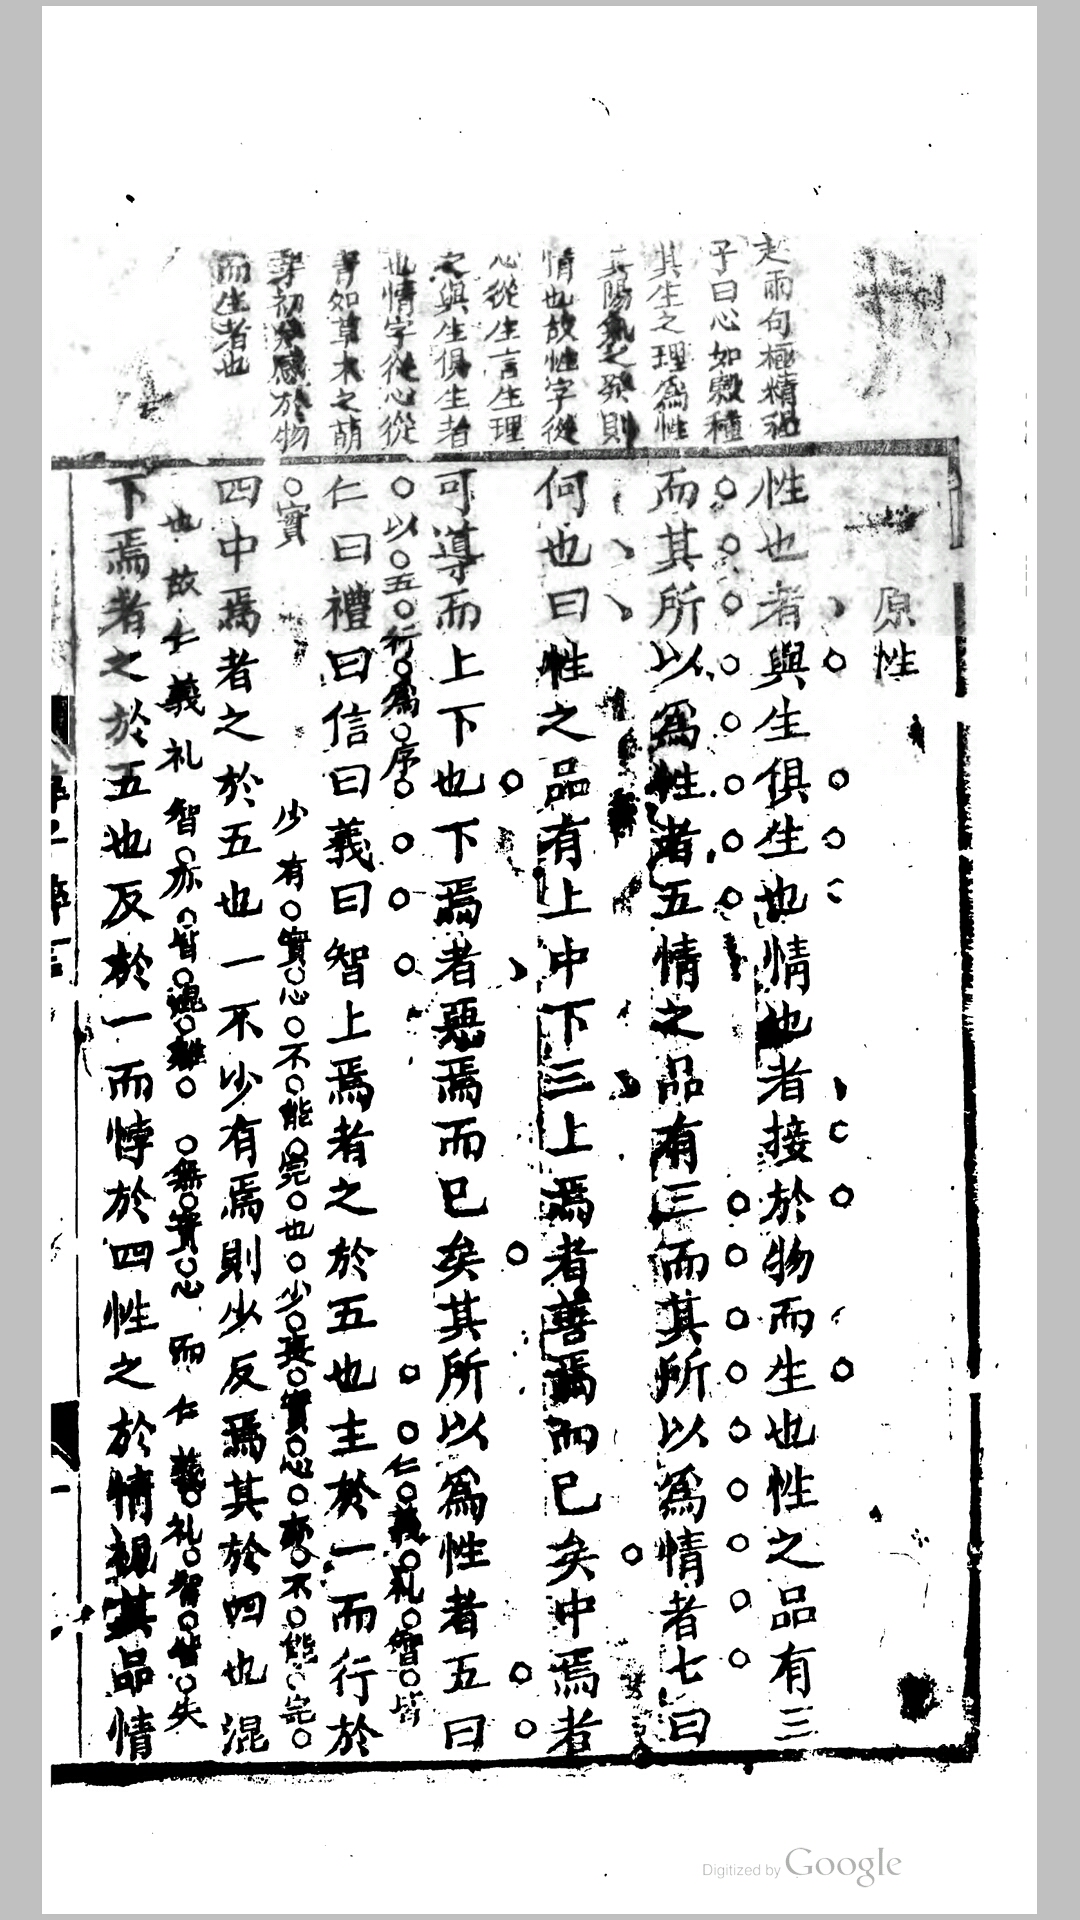 起兩句極精程
子曰心如穀種
其生之理爲性
其陽氣之發則
情也故性字從
心從生言生理
之與生俱生者
也情字從心從
青如草木之萌
芽初發感於物
而生者也
原性
性也者與生俱生也情也者接於物而生也性之品有三
而其所以爲性者五情之品有三而其所以爲情者七曰
何也曰性之品有上中下三上焉者善焉而已矣中焉者
可導而上下也下焉者惡焉而已矣其所以爲性者五曰
以五行爲序 仁義礼智皆
仁曰禮曰信曰義曰智上焉者之於五也主於一而行於
實 少有實心不能完也少喪實心亦不能完
四中焉者之於五也一不少有焉則少反焉其於四也混
也故仁義礼智亦皆混雜 無實心而仁義礼智皆失
下焉者之於五也反於一而悖於四性之於情視其品情
Digitized by Google